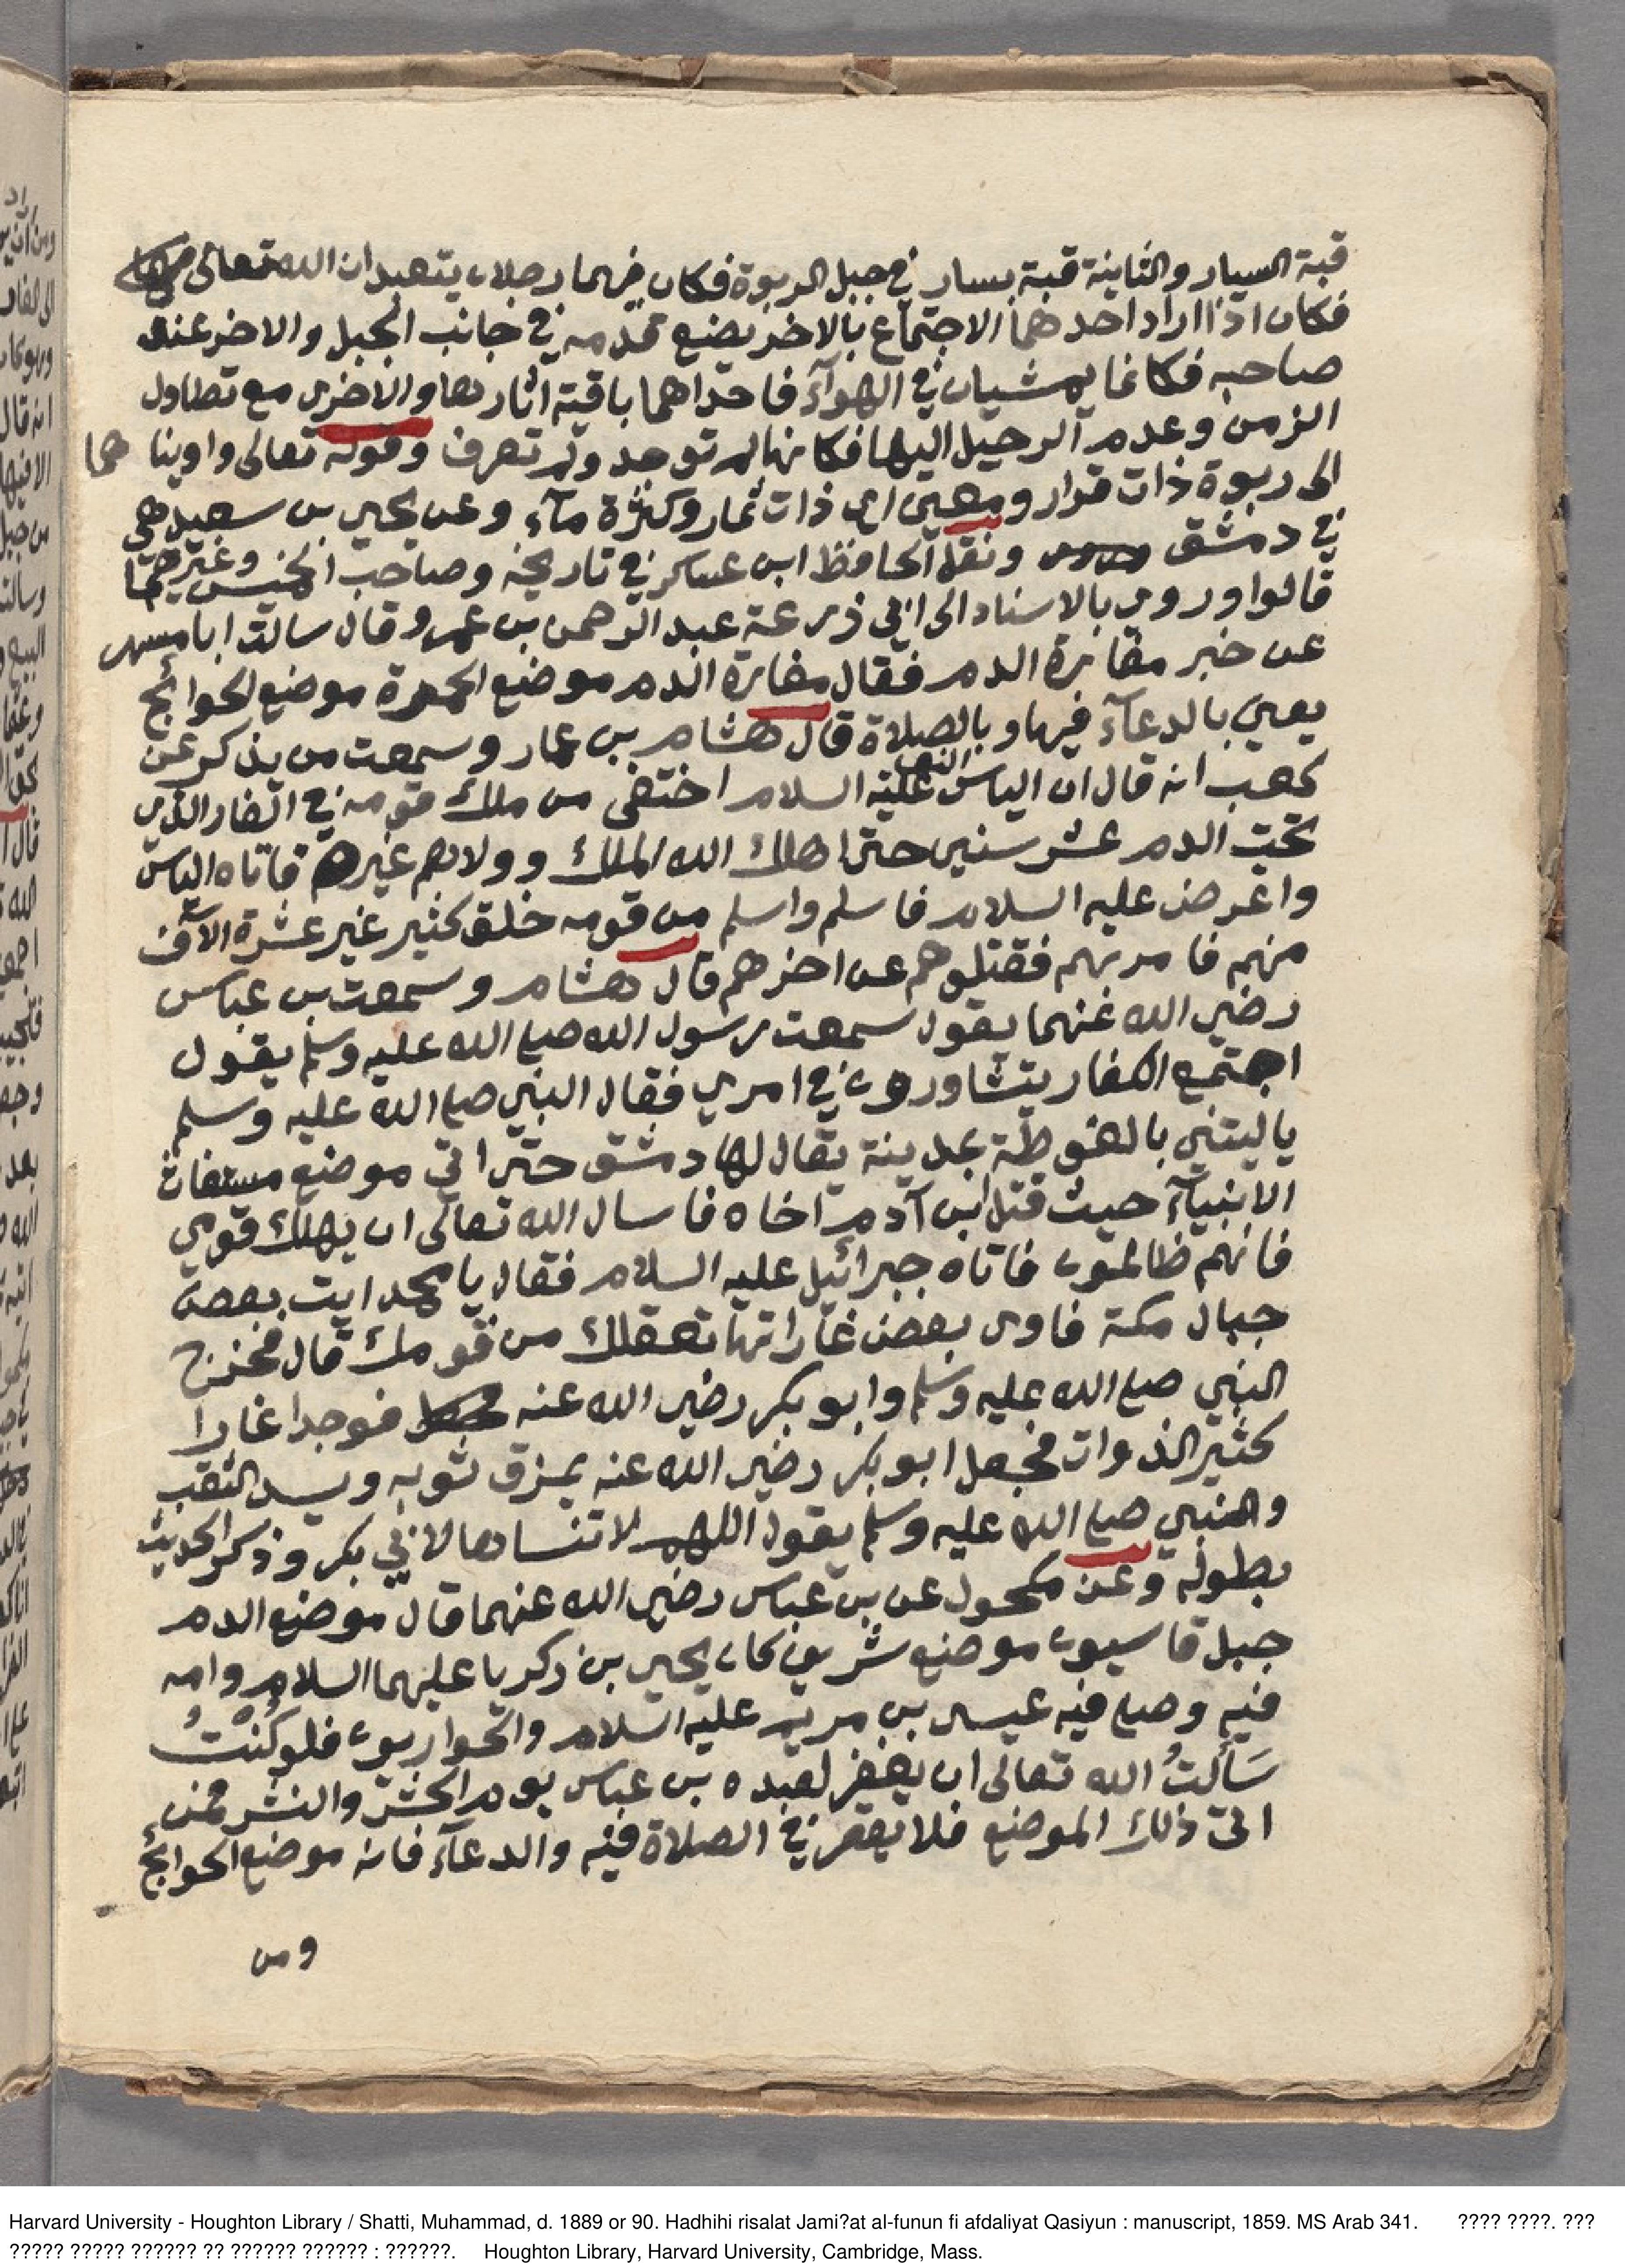 قبة السيار والثانية قبة بسار في جبل الربوة فكان فيهما رجلان يتعبدان الله تعالى
فكان اذا اراد احدهما الاجتماع بالاخر يضع قدمه في جانب الجبل والاخر عند
صاحبه فكانما يمشيان في الهوآء فاحداهما باقية اثارها والاخرى مع تطاول
الزمن وعدم الرحيل اليها فكانها لم توجد ولم تعرف وقوله تعالى واوينا هما
الى ربوة ذات قرار ومعين اي ذات ثمار وكثرة مآء وعن يحيى بن سعيد هي
في دمشق ونقل الحافظ ابن عساكر في تاريخه وصاحب الخميس وغيرهما
قالوا وروي بالاسناد الى ابي زرعة عبد الرحمن بن عمرو قال سالت ابا مسهر
عن خبر مغارة الدم فقال مغارة الدم موضع الحمرة موضع الحوائج
يعني بالدعآء فيها وبالصلاة قال هشام بن عمار وسمعت من يذكر عن
كعب انه قال ان الياس النبي عليه السلام اختفى من ملك قومه في الغار الذي
تحت الدم عشر سنين حتى اهلك الله الملك وولاهم غيره فاتاه الياس
واعرض عليه السلام فاسلم واسلم من قومه خلق كثير غير عشرة الآف
منهم فامر بهم فقتلوهم عن اخرهم قال هشام وسمعت بن عباس
رضي الله عنهما يقول سمعت رسول الله صلى الله عليه وسلم يقول
اجتمع الكفار يتشاورون في امري فقال النبي صلى الله عليه وسلم
يا ليتني بالغوطة بمدينة يقال لها دمشق حتى اتي موضع مستغاث
الانبيآء حيث قتل ابن آدم اخاه فاسال الله تعالى ان يهلك قومي
فانهم ظالمون فاتاه جبرائيل عليه السلام فقال يا محمد ايت بعض
جبال مكة فاوى بعض غاراتها تعقلك من قومك قال فخرج
النبي صلى الله عليه وسلم وابو بكر رضي الله عنه فوجدا غارا
كثير الذوات فجعل ابو بكر رضي الله عنه يمزق ثوبه ويسد الثقب
والنبي صلى الله عليه وسلم يقول اللهم لا تنساها لابي بكر وذكر الحديث
بطوله وعن مكحول عن بن عباس رضي الله عنهما قال موضع الدم
جبل قاسيون موضع شريف كان يحيى بن زكريا عليهما السلام وامه
فيه وصلى فيه عيسى بن مريم عليه السلام والحواريون فلو كُنْتُ
سَأَلتُ الله تعالى ان يغفر لعبده بن عباس يوم الحشر والنشر فمن
اتى ذلك الموضع فلا يقصر في الصلاة فيه والدعآء فانه موضع الحوائج
ومن
Harvard University - Houghton Library / Shatti, Muhammad, d. 1889 or 90. Hadhihi risalat Jami?at al-funun fi afdaliyat Qasiyun : manuscript, 1859. MS Arab 341. ???? ????. ???
????? ????? ?????? ?? ?????? ?????? : ??????. Houghton Library, Harvard University, Cambridge, Mass.